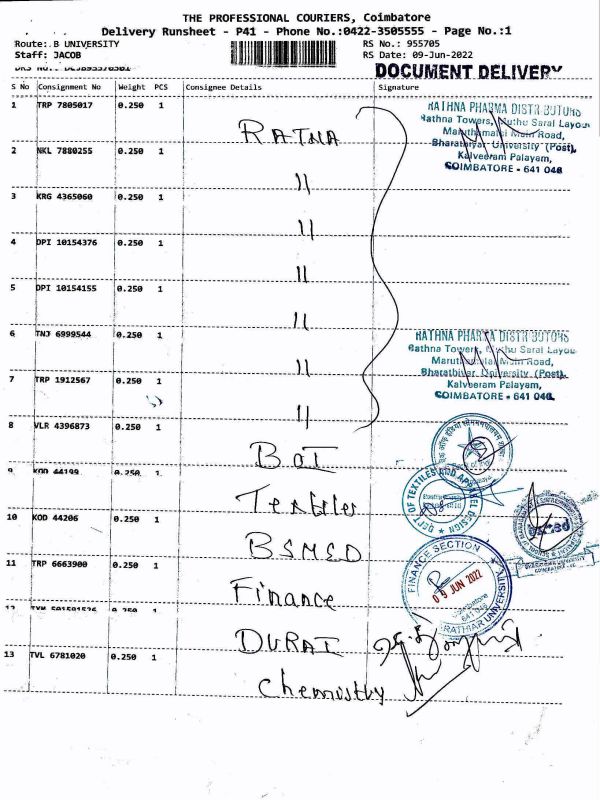 THE PROFESSIONAL COURIERS, Coimbatore
Delivery Runsheet - P41 - Phone No.:0422-3505555 - Page No.:1
Route:.B UNIVERSITY RS No.: 955705
Staff: JACOB RS Date: 09-Jun-2022
DOCUMENT DELIVERY
S No Consignment No Weight PCS Consignee Details Signature
1 TRP 7805017 0.250 1
RATNA
RATHNA PHARMA DISTRIBUTORS
Rathna Towers, Muthu Sarai Layou
Main Road,
Bharathiyar University (Post),
Kalveeram Palayam,
COIMBATORE - 641 046
2 NKL 7880255 0.250 1
"
3 KRG 4365060 0.250 1
"
4 DPI 10154376 0.250 1
"
5 DPI 10154155 0.250 1
"
6 TNJ 6999544 0.250 1
"
RATHNA PHARMA DISTRIBUTORS
Rathna Towers, Muthu Sarai Layou
Main Road,
Bharathiyar University (Post),
Kalveeram Palayam,
COIMBATORE - 641 046
7 TRP 1912567 0.250 1
"
8 VLR 4396873 0.250 1
BOI
9 KOD 44199 0.250 1
Textiles
DEPT OF TEXTILES AND APPAREL DESIGN
10 KOD 44206 0.250 1
BSMED
11 TRP 6663900 0.250 1
Finance
FINANCE SECTION
09 JUN 2022
Coimbatore
641 046
UNIVERSITY
12 0.250 1
DURAI
13 TVL 6781020 0.250 1
Chemistry